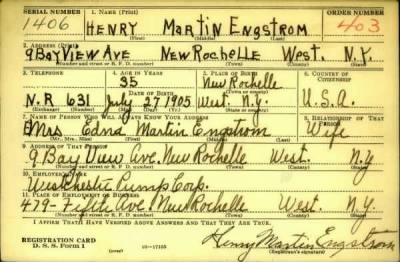 SERIAL NUMBER 1. NAME (Print) ORDER NUMBER
1406 HENRY MARTIN ENGSTROM 403
(First) (Middle) (Last)
2. ADDRESS (Print)
9 BAY VIEW AVE NEW ROCHELLE WEST. N.Y.
(Number and street or R. F. D. number) (Town) (County) (State)
3. TELEPHONE 4. AGE IN YEARS 5. PLACE OF BIRTH 6. COUNTRY OF CITIZENSHIP
35 New Rochelle
DATE OF BIRTH (Town or county)
N.R 631 July 27 1905 West. N.Y. U.S.A.
(Exchange) (Number) (Mo.) (Day) (Yr.) (State or country)
7. NAME OF PERSON WHO WILL ALWAYS KNOW YOUR ADDRESS 8. RELATIONSHIP OF THAT PERSON
Mrs. Edna Martin Engstrom Wife
(Mr., Mrs., Miss) (First) (Middle) (Last)
9. ADDRESS OF THAT PERSON
9 Bay View Ave. New Rochelle West. N.Y
(Number and street or R. F. D. number) (Town) (County) (State)
10. EMPLOYER'S NAME
Westchester Pump Corp.
11. PLACE OF EMPLOYMENT OR BUSINESS
479- Fifth Ave New Rochelle West. N.Y.
(Number and street or R. F. D. number) (Town) (County) (State)
I AFFIRM THAT I HAVE VERIFIED ABOVE ANSWERS AND THAT THEY ARE TRUE.
REGISTRATION CARD
D. S. S. Form 1 (over) 16-17105
Henry Martin Engstrom
(Registrant's signature)